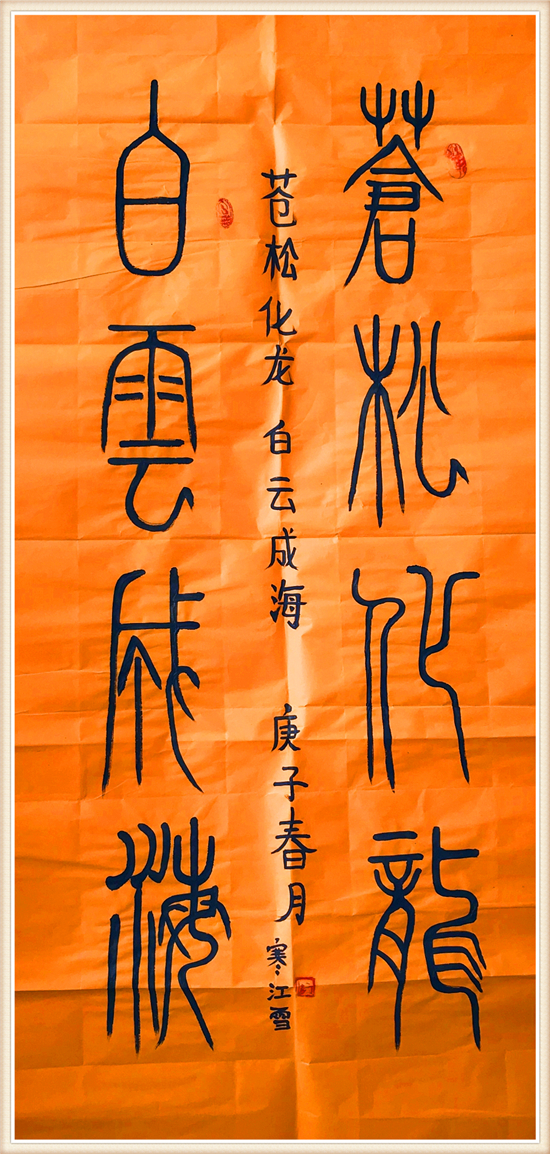 蒼松化龍
白雲成海
苍松化龙 白云成海 庚子春月 寒江雪